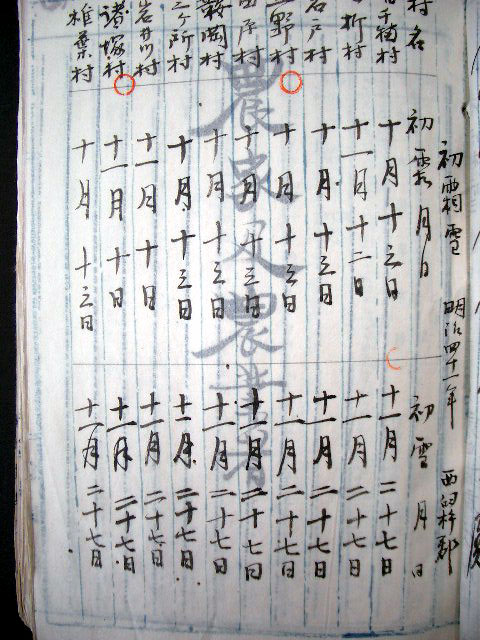 初霜雪 明治四十一年 西臼杵郡
村名 初霜月日 初雪月日
千穂村 十月十三日 十一月二十七日
折村 十一月十二日 十一月二十七日
岩戸村 十月十三日 十一月二十七日
野村 十月十三日 十一月二十七日
田原村 十月十三日 十一月二十七日
鞍岡村 十月十三日 十一月二十七日
三ヶ所村 十月十三日 十一月二十七日
岩井川村 十一月十日 十一月二十七日
諸塚村 十一月十日 十一月二十七日
椎葉村 十月十三日 十一月二十七日